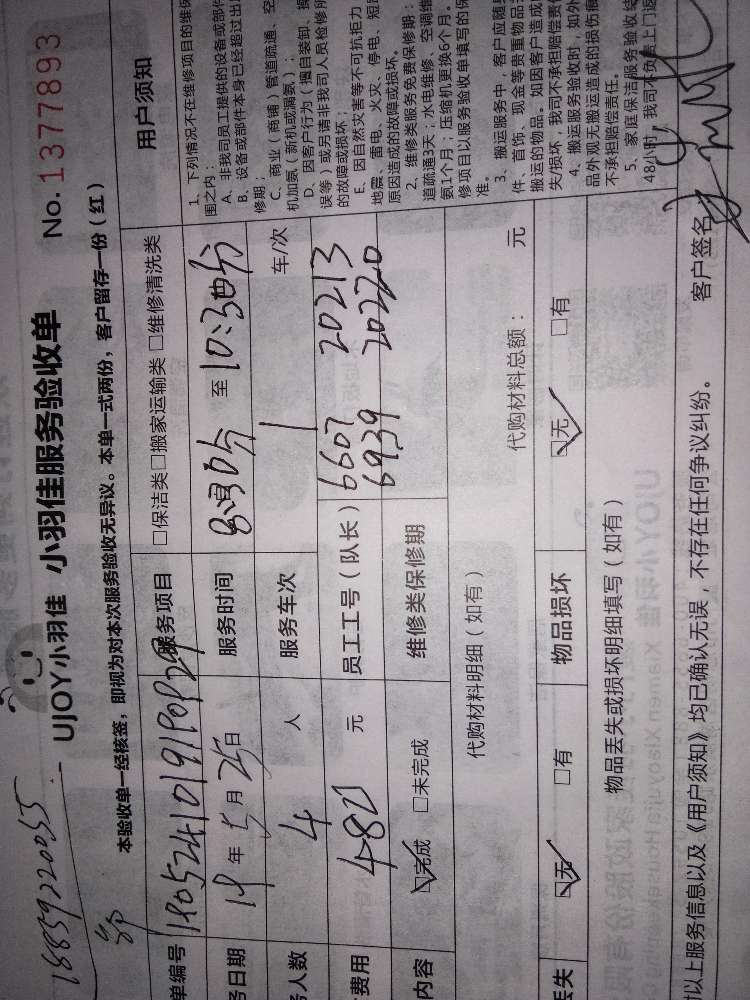 18859220055
UJOY小羽佳 小羽佳服务验收单 No.1377893
本验收单一经核签，即视为对本次服务验收无异议。本单一式两份，客户留存一份（红）
单编号
服务项目 □保洁类□搬家运输类 □维修清洗类
务日期 年5月25日 服务时间 8:30分 至 10:30分
务人数 4 人 服务车次 1 车/次
费用 482 元 员工工号（队长） 6607 20213
6939 20220
内容 ☑完成 □未完成 维修类保修期
代购材料明细（如有） 代购材料总额： 元
丢失 ☑无 □有 物品损坏 ☑无 □有
物品丢失或损坏明细填写（如有）
对以上服务信息以及《用户须知》均已确认无误，不存在任何争议纠纷。 客户签名
用户须知
1、下列情况不在维修项目的维保
围之内：
A、非我司员工提供的设备或部件
B、设备或部件本身已经超过出
修期；
C、商业（商铺）管道疏通、空
机加氨（新机或漏氨）；
D、因客户行为（擅自装卸、操
误等）或另请非我司人员检修所
的故障或损坏；
E、因自然灾害等不可抗拒力
地震、雷电、火灾、停电、短路
原因造成的故障或损坏。
2、维修类服务免费保修期：
道疏通3天；水电维修、空调维
氨1个月；压缩机更换6个月。
修项目以服务验收单填写的保
准。
3、搬运服务中，客户应随身
件、首饰、现金等贵重物品
搬运的物品。如因客户造成
失/损坏，我司不承担赔偿责
4、搬运服务验收时，如外
品外观无搬运造成的损伤痕
不承担赔偿责任。
5、家庭保洁服务验收
48小时，我司不负责上门返